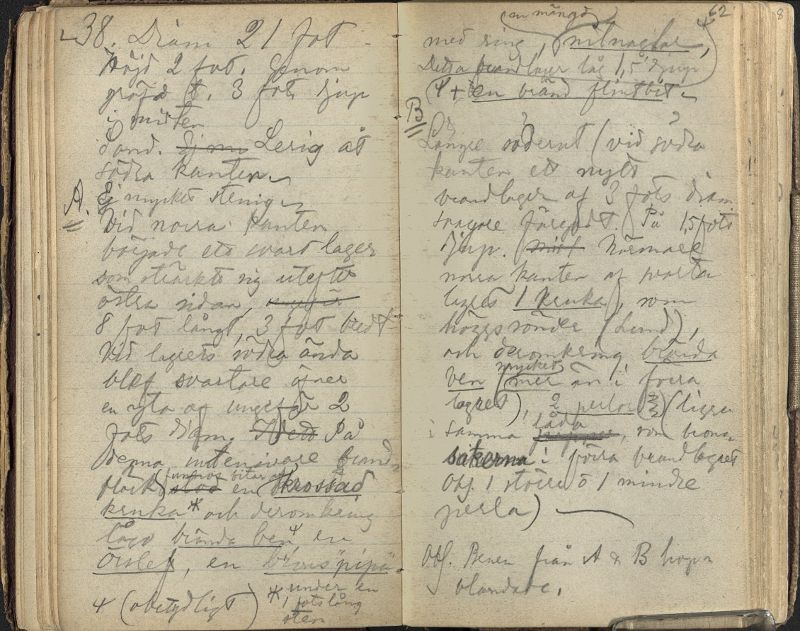 38. Diam 21 fot
Höjd 2 fot. Genom
gräfd t. 3 fots djup
i midten
Sand. Lerig åt
södra kanten
A. Ej mycket stenig
Vid norra kanten
började ett svart lager
som sträckte sig utefter
östra sidan,
8 fot långt, 3 fot bredt
Vid lagrets södra ända
blef svartare öfver
en yta af ungefär 2
fots diam. På
denna intensivare brand-
fläck funnos bitar af en krossad
kruka * och deromkring
lågo brända ben ⁴ en
Örslef, en brons"pipa"
4 (obetydligt)
* under en
1 fots lång
sten
62
en mängd
med ring, nitnaglar,
Detta brandlager låg 1,5' djup
4 + en bränd flintbit
B
Längre söderut (vid södra
kanten ett nytt
brandlager af 3 fots diam
svagare föregåt. På 1,5 fots
djup. Närmare
norra kanten af svarta
lagret 1 kruka, som
höggs sönder (Lund),
och deromkring brända
ben (mycket mer än i förra
lagret), 2 perlor (ligga
i samma låda, som brons
sakerna i förra brandlagret
Obs. 1 större o 1 mindre
perla)
Obs. Benen från A & B hopa
blandade.
8